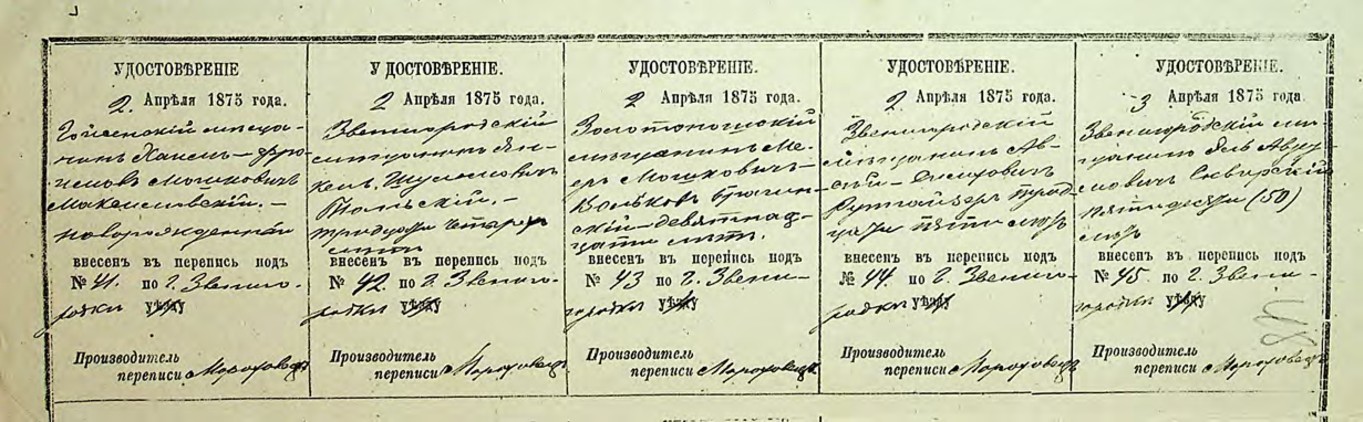 УДОСТОВѢРЕНІЕ
2 Апрѣля 1875 года.
мѣща-
нинъ Хаимъ
Мошковичъ
новорожденный
внесенъ въ перепись подъ
№ 41. по г. Звениго-
родки уѣзду
Производитель
переписи
УДОСТОВѢРЕНІЕ.
2 Апрѣля 1875 года.
Звенигородскій
мѣщанинъ Ян-
кель Шулимовичъ
Тальскій. —
тридцати четырехъ
лѣтъ
внесенъ въ перепись подъ
№ 42 по г. Звениго-
родки уѣзду
Производитель
переписи
УДОСТОВѢРЕНІЕ.
2 Апрѣля 1875 года.
Золотоношскій
мѣщанинъ Ме-
еръ Мошковичъ —
скій — девятнад-
цати лѣтъ.
внесенъ въ перепись подъ
№ 43 по г. Звени-
городки уѣзду
Производитель
переписи
УДОСТОВѢРЕНІЕ.
2 Апрѣля 1875 года.
Звенигородскій
мѣщанинъ Ав-
трид-
цати пяти лѣтъ
внесенъ въ перепись подъ
№ 44. по г. Звениго-
родки уѣзду
Производитель
переписи
УДОСТОВѢРЕНІЕ.
3 Апрѣля 1875 года
Звенигородскій мѣ-
щанинъ Авру-
мовичъ Сквирскій
пятидесяти (50)
лѣтъ
внесенъ въ перепись подъ
№ 45. по г. Звени-
городки уѣзду
Производитель
переписи